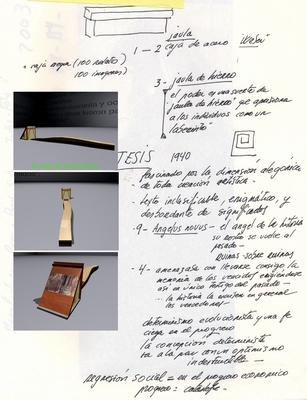 jaula
1 – 2 caja de acero "Weber"
" caja negra (100 relatos)
100 imagenes)
3 – jaula de hierro
el poder es una suerte de
"jaula de hierro" que aprisiona
a los individuos como un
laberinto"
TESIS 1940
fascinado por la dimensión alegórica
de toda creación artística -
- texto inclasificable, enigmático, y
desbordante de significados
- 9 - Angelus novus - el angel de la historia
su rostro se vuelve al
pasado -
ruinas sobre ruinas
- 4 - amenazaba con llevarse consigo la
memoria de los vencidos
así en único testigo del pasado -
... la historia la escriben en general
los vencedores -
determinismo evolucionista y una fe
ciega en el progreso
la concepción determinista
va a la par con un optimismo
indestructible -
regresión social = en el progreso economico
progreso = catástrofe -